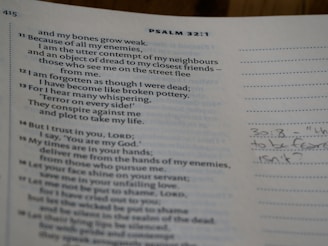 415
PSALM 32:1
and my bones grow weak.
11 Because of all my enemies,
I am the utter contempt of my neighbours
and an object of dread to my closest friends –
those who see me on the street flee
from me.
12 I am forgotten as though I were dead;
I have become like broken pottery.
13 For I hear many whispering,
'Terror on every side!'
They conspire against me
and plot to take my life.
14 But I trust in you, LORD;
I say, 'You are my God.'
15 My times are in your hands;
deliver me from the hands of my enemies,
from those who pursue me.
16 Let your face shine on your servant;
save me in your unfailing love.
17 Let me not be put to shame, LORD,
for I have cried out to you;
but let the wicked be put to shame
and be silent in the realm of the dead.
18 Let their lying lips be silenced,
for with pride and contempt
they speak arrogantly against the
to be
isn't?